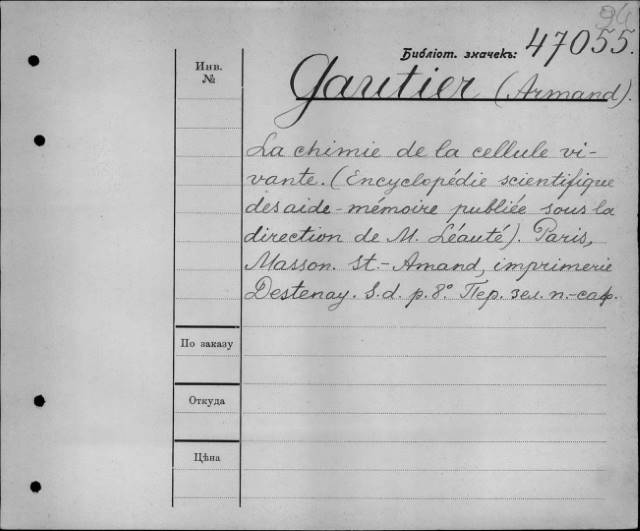 94
Библіот. значекъ: 47055.
Инв.
№
Gautier (Armand).
La chimie de la cellule vi-
vante. (Encyclopédie scientifique
des aide-mémoire publiée sous la
direction de M. Léauté). Paris,
Masson. St.-Amand, imprimerie
Destenay. S.d. p. 8° Пер. зел. п.-саф.
По заказу
Откуда
Цѣна